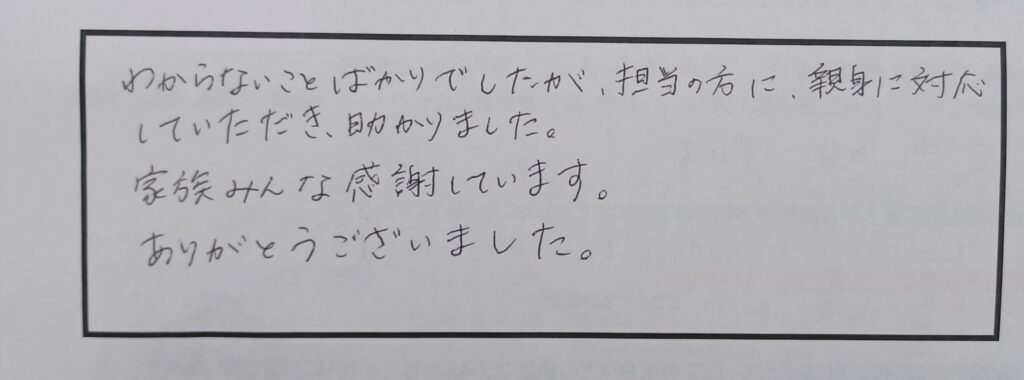 わからないことばかりでしたが、担当の方に、親身に対応
していただき、助かりました。
家族みんな感謝しています。
ありがとうございました。